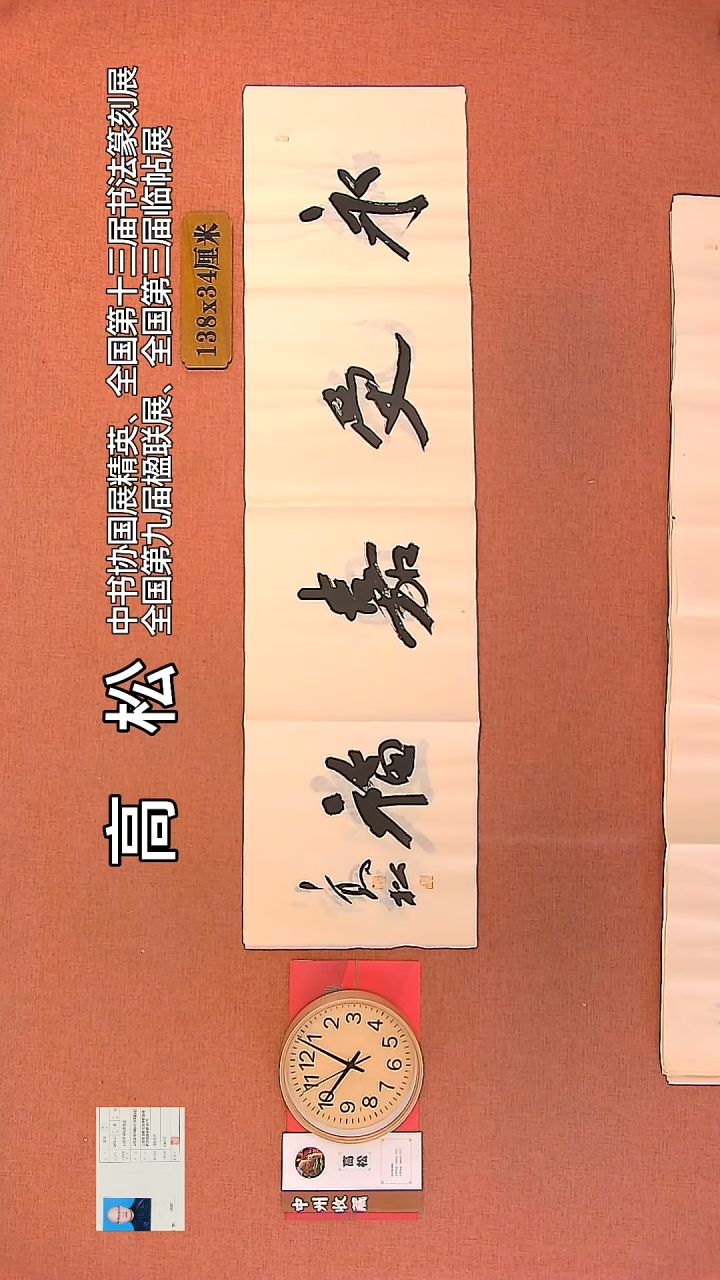 高 松
中书协国展精英、全国第十三届书法篆刻展
全国第九届楹联展、全国第三届临帖展
138x34厘米
永
受
嘉
福
高松
12
1
2
3
4
5
6
7
8
9
10
11
高松
中州收藏